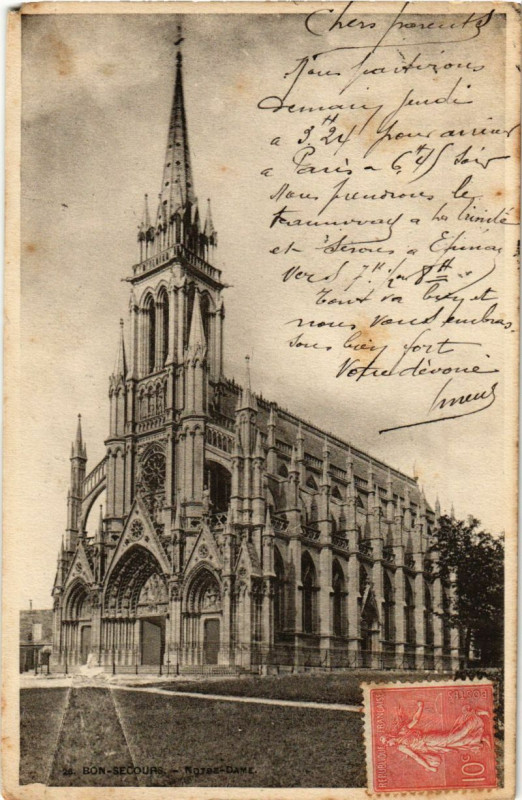 Chers parents
Nous partirons
demain jeudi
a 3H24 pour arriver
a Paris a 6H45 soir
Nous prendrons le
tramway a la Trinité
et serons a Epinay
vers 7H½ ou 8H
Tout va bien et
nous vous embras.
sons bien fort
Votre dévoué
26. BON-SECOURS. - NOTRE-DAME.
REPUBLIQUE FRANÇAISE
POSTES
10c